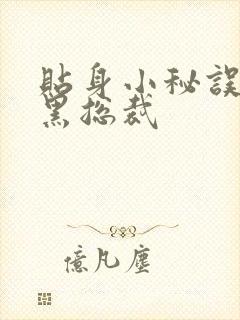 貼身小秘誤
黑總裁
億凡塵